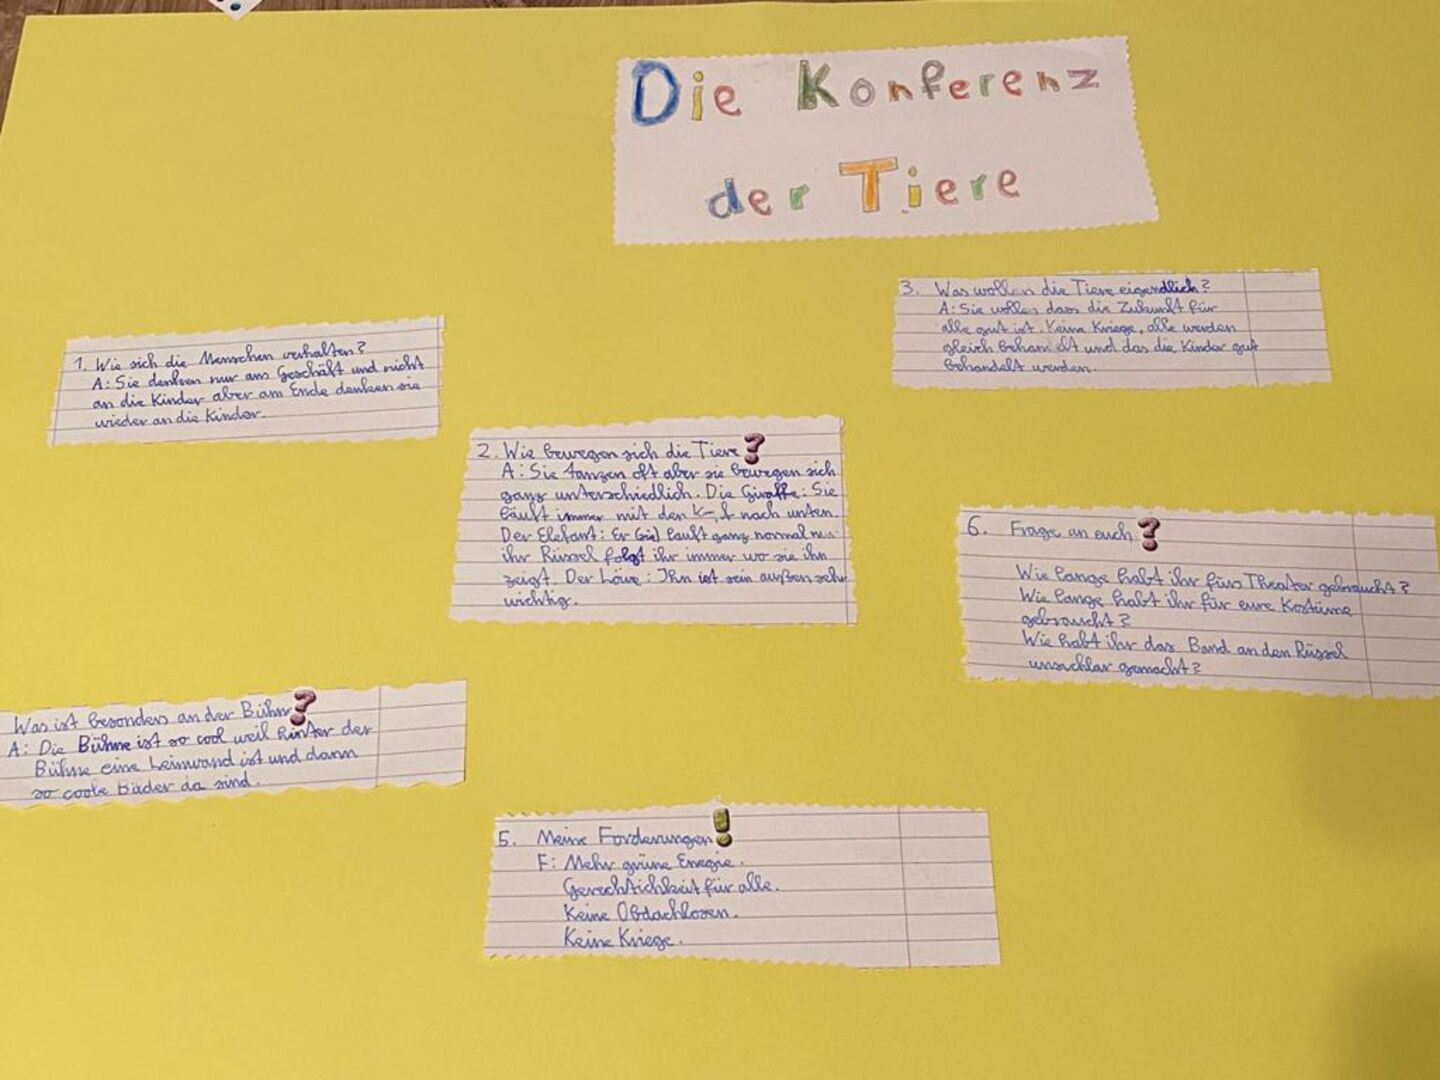 Die Konferenz
der Tiere
1. Wie sich die Menschen verhalten?
A: Sie denken nur ans Geschäft und nicht
an die Kinder aber am Ende denken sie
wieder an die Kinder.
2. Wie bewegen sich die Tiere?
A: Sie tanzen oft aber sie bewegen sich
ganz unterschiedlich. Die Giraffe: Sie
läuft immer mit den nach unten.
Der Elefant: Er (sie) läuft ganz normal nur
ihr Rüssel folgt ihr immer wo sie ihn
zeigt. Der Löwe: Ihn ist sein außen sehr
wichtig.
3. Was wollen die Tiere eigendlich?
A: Sie wollen dass die Zukunft für
alle gut ist. Keine Kriege, alle werden
gleich behandelt und das die Kinder gut
behandelt werden.
Was ist besonders an der Bühne?
A: Die Bühne ist so cool weil hinter der
Bühne eine Leinwand ist und dann
so coole Bilder da sind.
5. Meine Forderungen!
F: Mehr grüne Energie.
Gerechtichkeit für alle.
Keine Obdachlosen.
Keine Kriege.
6. Frage an euch?
Wie lange habt ihr fürs Theater gebraucht?
Wie lange habt ihr für eure Kostüme
gebraucht?
Wie habt ihr das Band an den Rüssel
unsichbar gemacht?